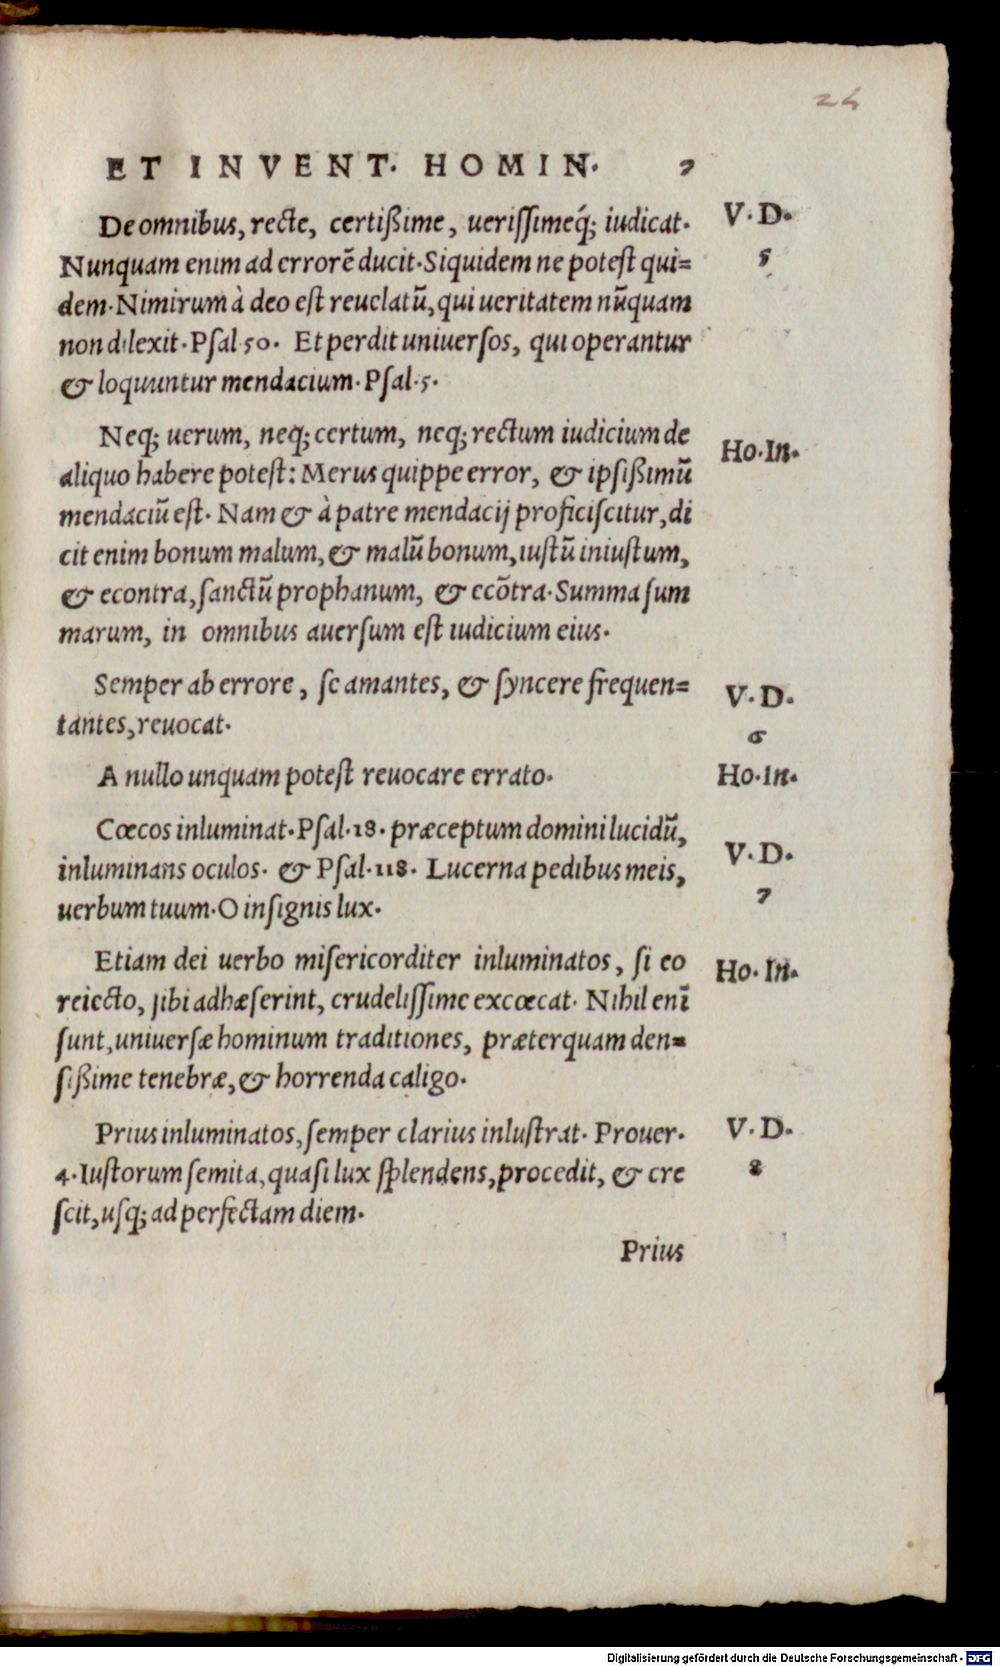 24
ET INVENT. HOMIN. 7
De omnibus, recte, certißime, ueriſſimeq́; iudicat. V. D.
Nunquam enim ad errorē ducit. Siquidem ne poteſt qui= 5
dem. Nimirum à deo eſt reuelatū, qui ueritatem nūquam
non dilexit. Pſal 50. Et perdit uniuerſos, qui operantur
& loquuntur mendacium. Pſal. 5.
Neq; uerum, neq; certum, neq; rectum iudicium de Ho. In.
aliquo habere poteſt: Merus quippe error, & ipſißimū
mendaciū eſt. Nam & à patre mendacij proficiſcitur, di
cit enim bonum malum, & malū bonum, iuſtū iniuſtum,
& econtra, ſanctū prophanum, & ecōtra. Summa ſum
marum, in omnibus auerſum eſt iudicium eius.
Semper ab errore, ſe amantes, & ſyncere frequen= V. D.
tantes, reuocat. 6
A nullo unquam poteſt reuocare errato. Ho. In.
Cœcos inluminat. Pſal. 18. præceptum domini lucidū, V. D.
inluminans oculos. & Pſal. 118. Lucerna pedibus meis, 7
uerbum tuum. O inſignis lux.
Etiam dei uerbo miſericorditer inluminatos, ſi eo Ho. In.
reiecto, ſibi adhæſerint, crudeliſſime excœcat. Nihil enī
ſunt, uniuerſæ hominum traditiones, præterquam den=
ſißime tenebræ, & horrenda caligo.
Prius inluminatos, ſemper clarius inluſtrat. Prouer. V. D.
4. Iuſtorum ſemita, quaſi lux ſplendens, procedit, & cre 8
ſcit, uſq; ad perfectam diem.
Prius
Digitalisierung gefördert durch die Deutsche Forschungsgemeinschaft - DFG